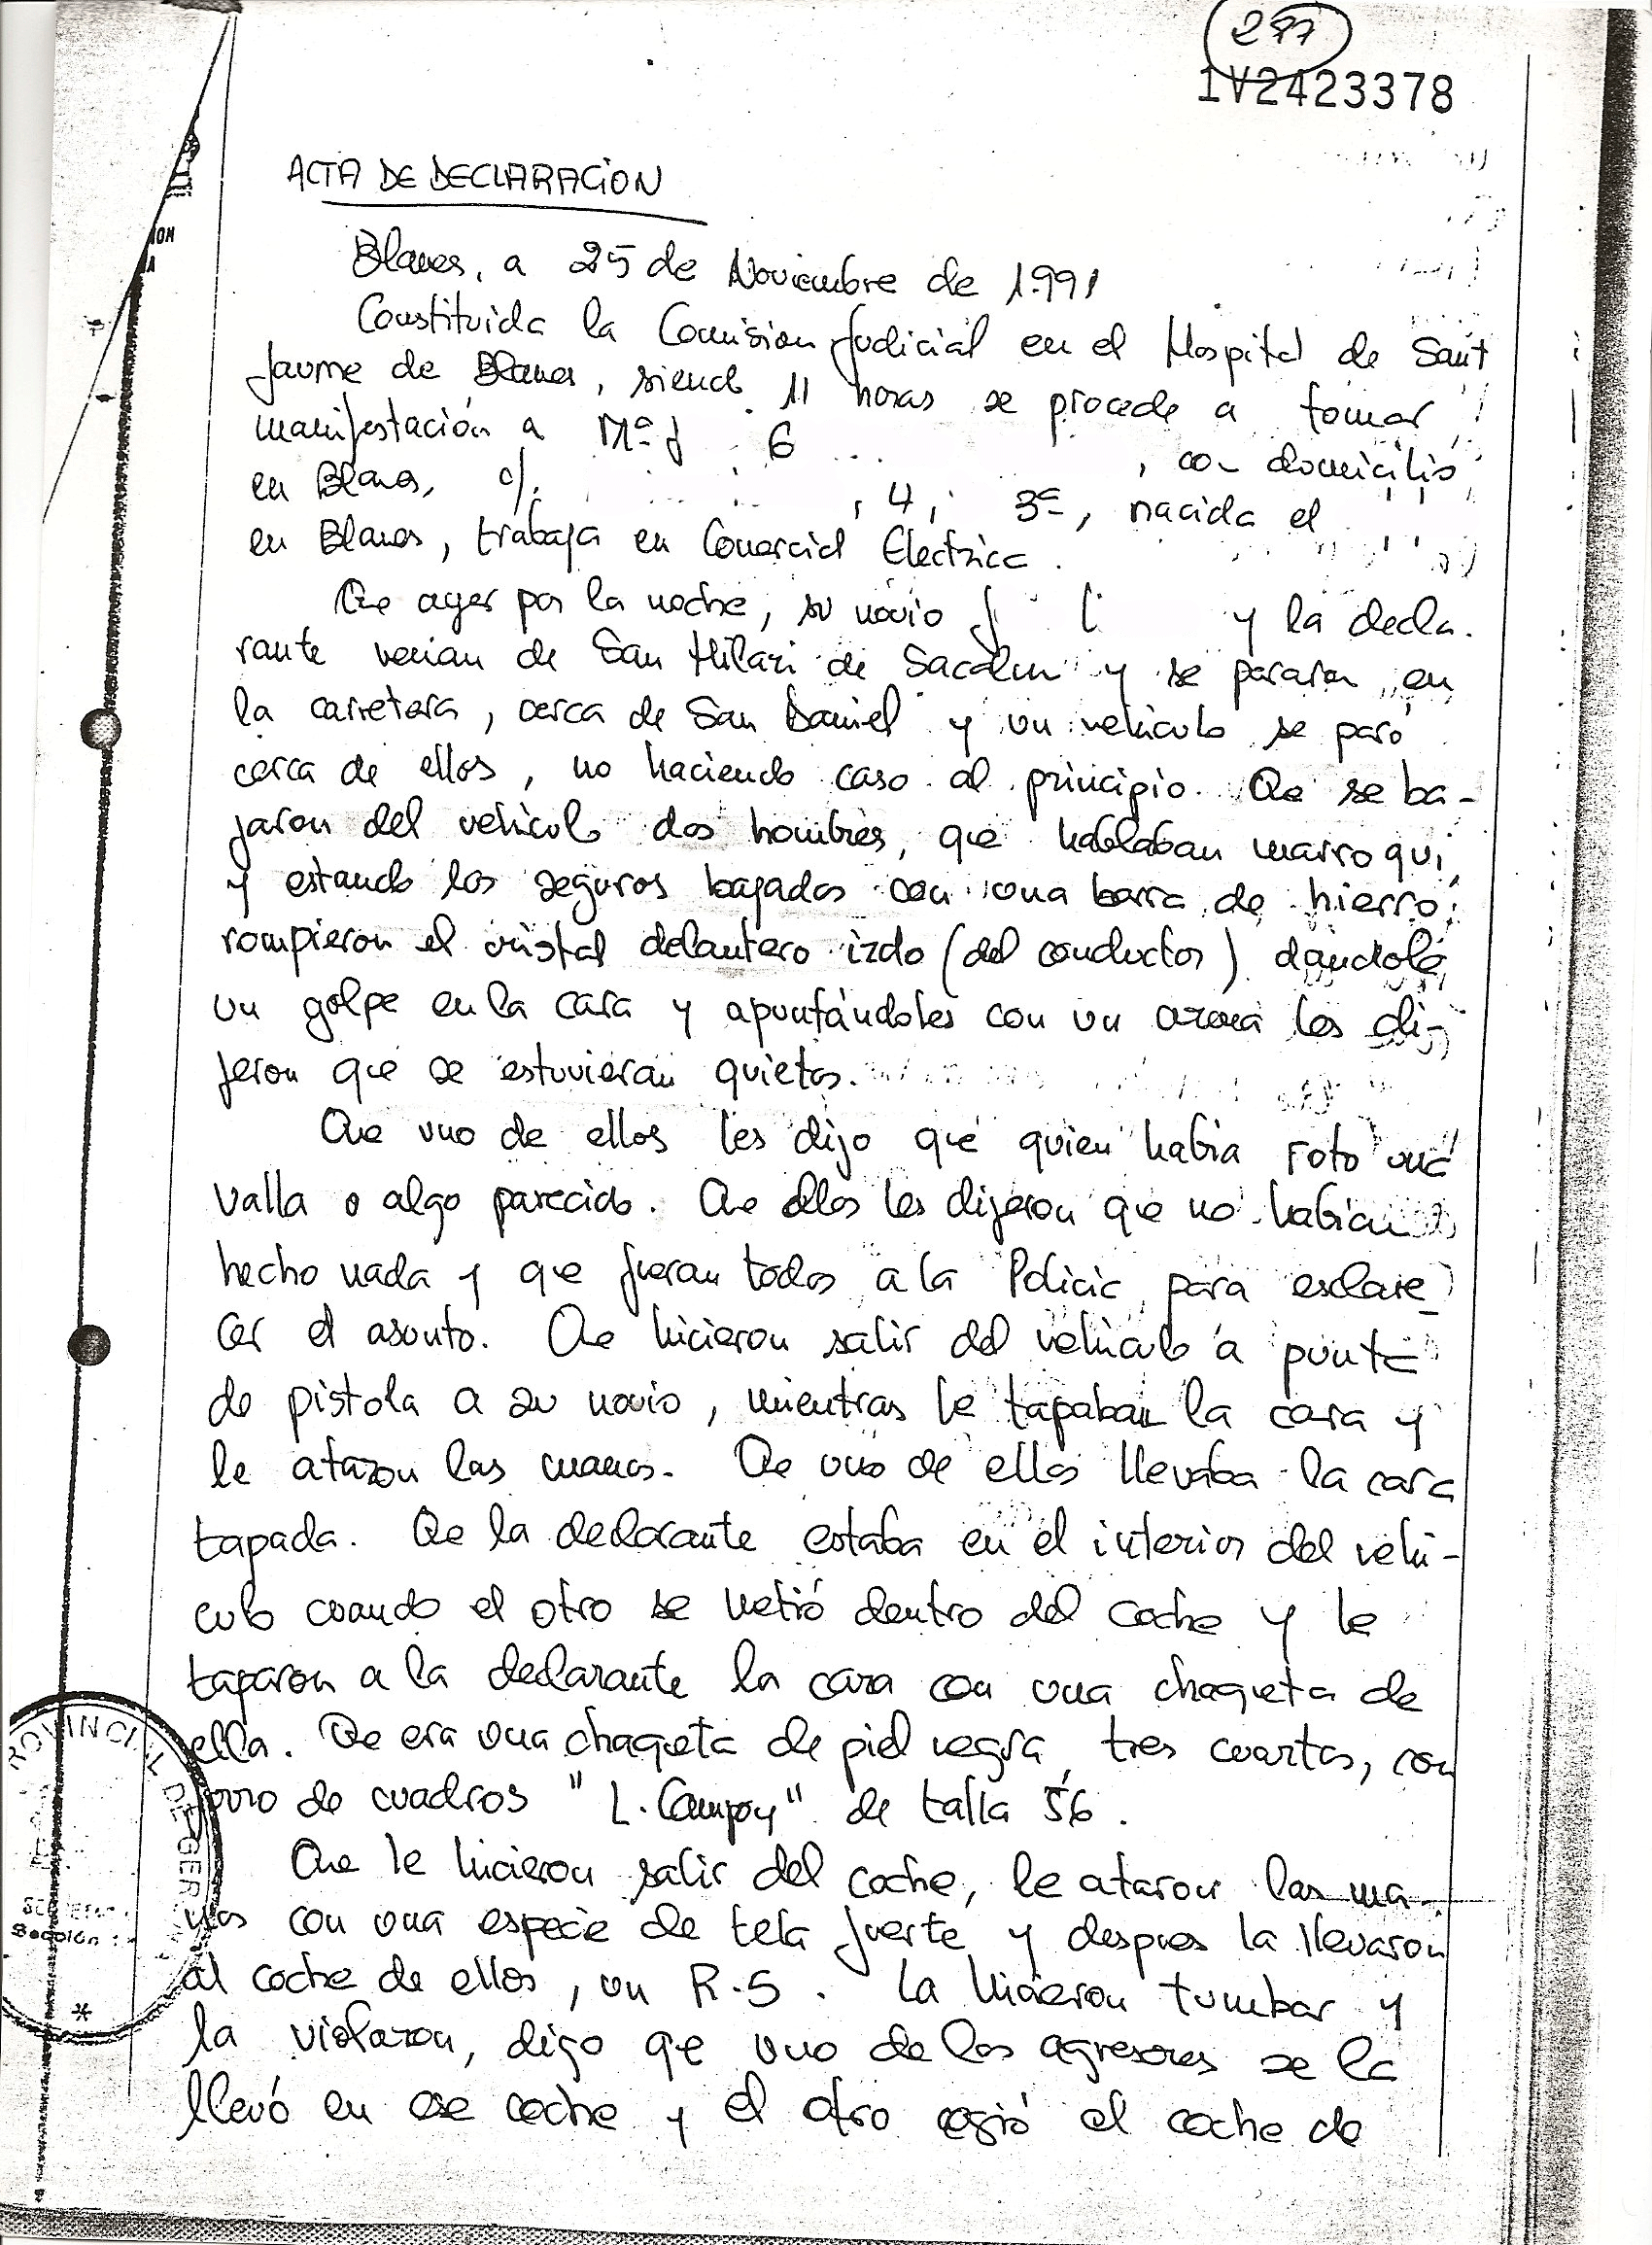 277
1V2423378
ACTA DE DECLARACION
Blanes, a 25 de Noviembre de 1.991
Constituida la Comision Judicial en el Hospital de Sant
Jaume de Blanes, siendo 11 horas se procede a tomar
manifestación a Mª J G
, con domicilio
en Blanes, c/. , 4, 3ª, nacida el
en Blanes, trabaja en Comercial Electrica.
Que ayer por la noche, su novio J y la decla.
rante venian de San Hilari de Sacalm y se pararon en
la carretera, cerca de San Daniel y un vehiculo se paró
cerca de ellos, no haciendo caso al principio. Que se ba-
jaron del vehiculo dos hombres, que hablaban marroqui,
y estando los seguros bajados con una barra de hierro
rompieron el cristal delantero izdo (del conductor) dándole
un golpe en la cara y apuntándoles con un arma les di-
jeron que se estuvieran quietos.
Que uno de ellos les dijo que quien habia roto una
valla o algo parecido. Que ellos les dijeron que no habian
hecho nada y que fueran todos a la Policia para esclare
cer el asunto. Que hicieron salir del vehiculo a punta
de pistola a su novio, mientras le tapaban la cara y
le ataron las manos. Que uno de ellos llevaba la cara
tapada. Que la declarante estaba en el interior del vehi-
culo cuando el otro se metió dentro del coche y le
taparon a la declarante la cara con una chaqueta de
ella. Que era una chaqueta de piel negra, tres cuartos, con
forro de cuadros "L. Campoy" de talla 56.
Que le hicieron salir del coche, le ataron las ma-
nos con una especie de tela fuerte y despues la llevaron
al coche de ellos, un R-5. La hicieron tumbar y
la violaron, digo que uno de los agresores se la
llevó en ese coche y el otro cogió el coche de
PROVINCIAL DE GERONA
Sección 1ª